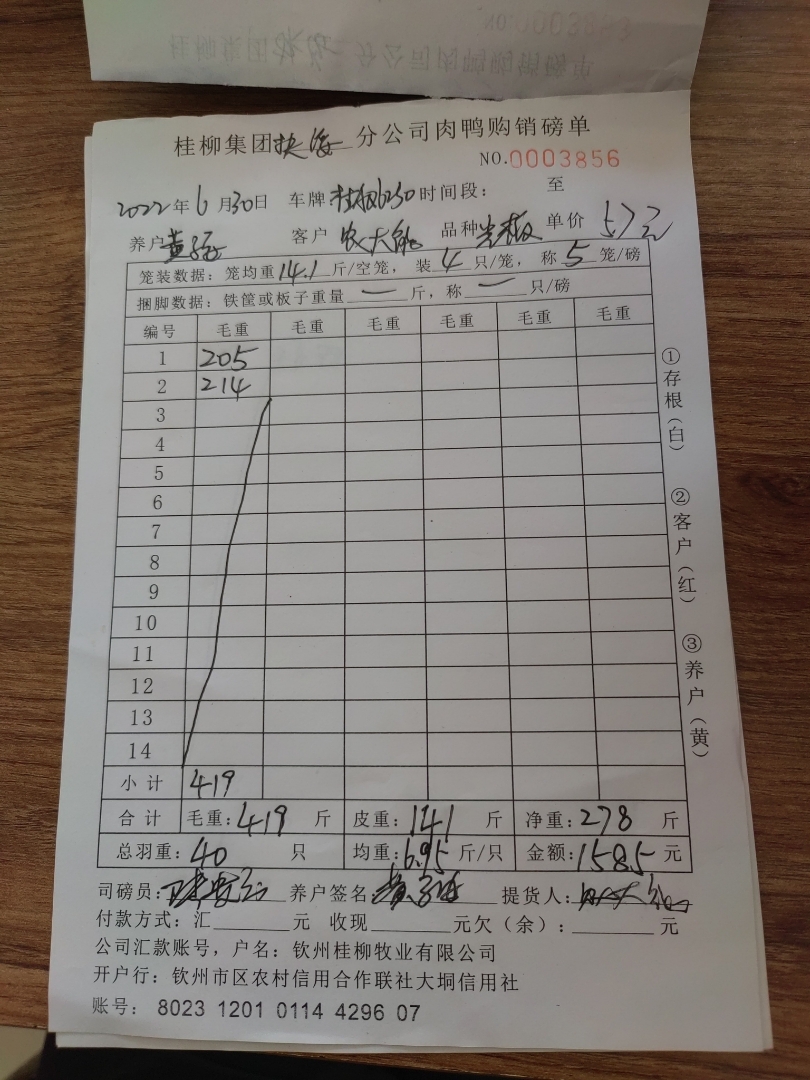 桂柳集团 分公司肉鸭购销磅单
NO.0003856
2022年6月30日 车牌: 6230 时间段: 至
养户 黄 客户 农大能 品种 光板 单价 5.7元
笼装数据:笼均重14.1斤/空笼,装4只/笼,称5笼/磅
捆脚数据:铁筐或板子重量一斤,称一只/磅
编号 毛重 毛重 毛重 毛重 毛重 毛重
1 205
2 214
3
4
5
6
7
8
9
10
11
12
13
14
小计 419
合计 毛重:419斤 皮重:141斤 净重:278斤
总羽重:40只 均重:6.95斤/只 金额:1585元
司磅员: 养户签名 提货人:
付款方式:汇 元 收现 元欠(余): 元
公司汇款账号,户名:钦州桂柳牧业有限公司
开户行:钦州市区农村信用合作联社大垌信用社
账号: 8023 1201 0114 4296 07
①存根(白)
②客户(红)
③养户(黄)